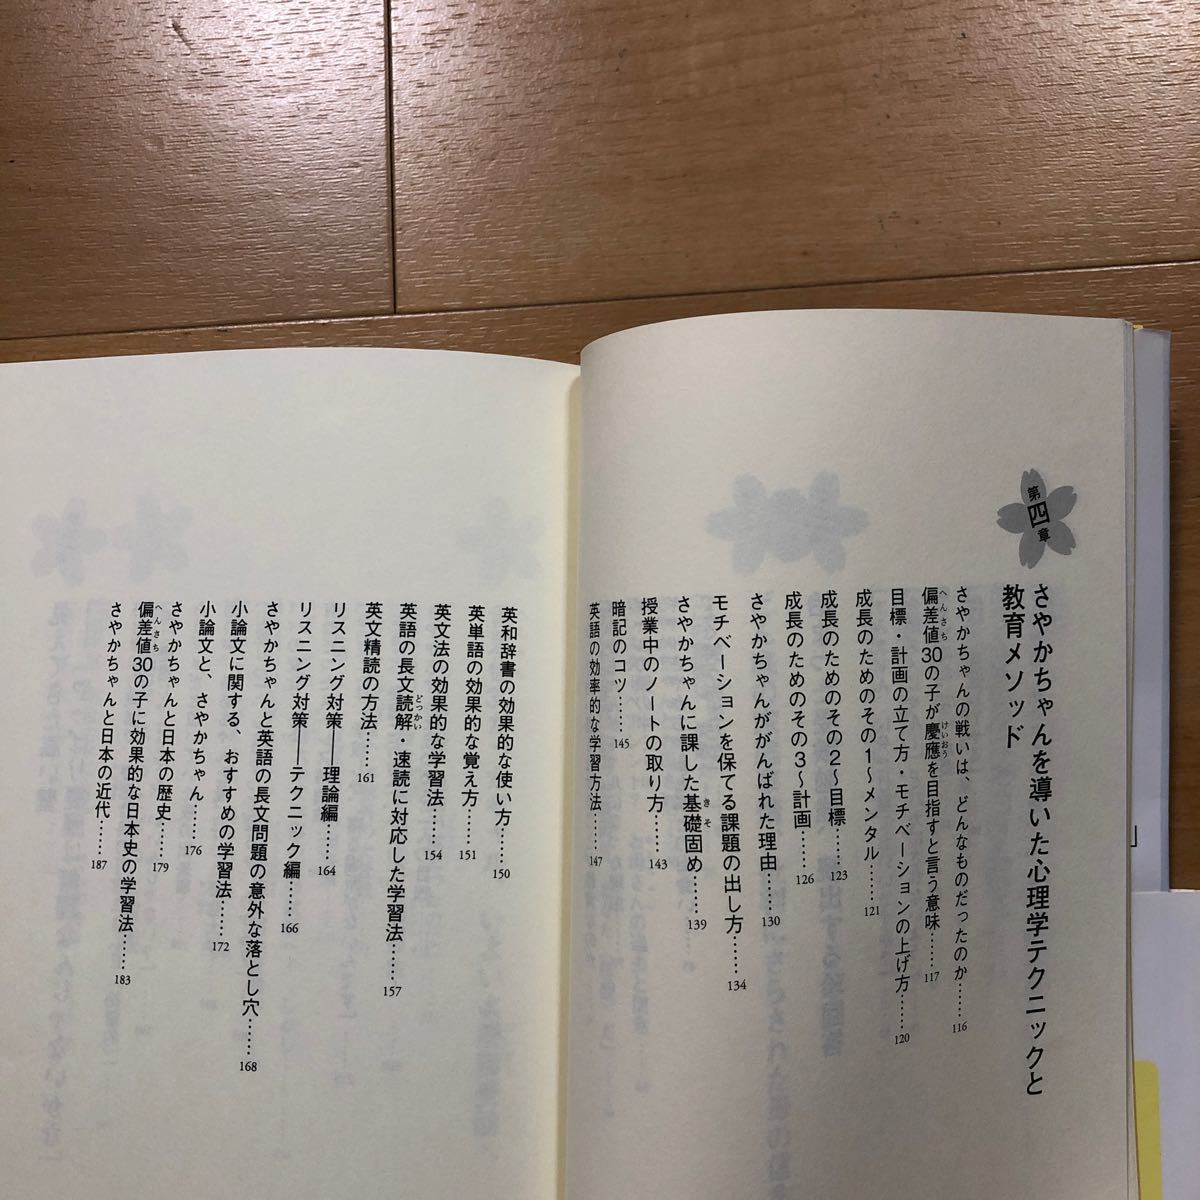 第四章
さやかちゃんを導いた心理学テクニックと
教育メソッド
さやかちゃんの戦いは、どんなものだったのか……116
偏差値30の子が慶應を目指すと言う意味……117
目標・計画の立て方・モチベーションの上げ方……120
成長のためのその1〜メンタル……121
成長のためのその2〜目標……123
成長のためのその3〜計画……126
さやかちゃんががんばれた理由……130
モチベーションを保てる課題の出し方……134
さやかちゃんに課した基礎固め……139
授業中のノートの取り方……143
暗記のコツ……145
英語の効率的な学習方法……147
英和辞書の効果的な使い方……150
英単語の効果的な覚え方……151
英文法の効果的な学習法……154
英語の長文読解・速読に対応した学習法……157
英文精読の方法……161
リスニング対策――理論編……164
リスニング対策――テクニック編……166
さやかちゃんと英語の長文問題の意外な落とし穴……168
小論文に関する、おすすめの学習法……172
小論文と、さやかちゃん……176
さやかちゃんと日本の歴史……179
偏差値30の子に効果的な日本史の学習法……183
さやかちゃんと日本の近代……187